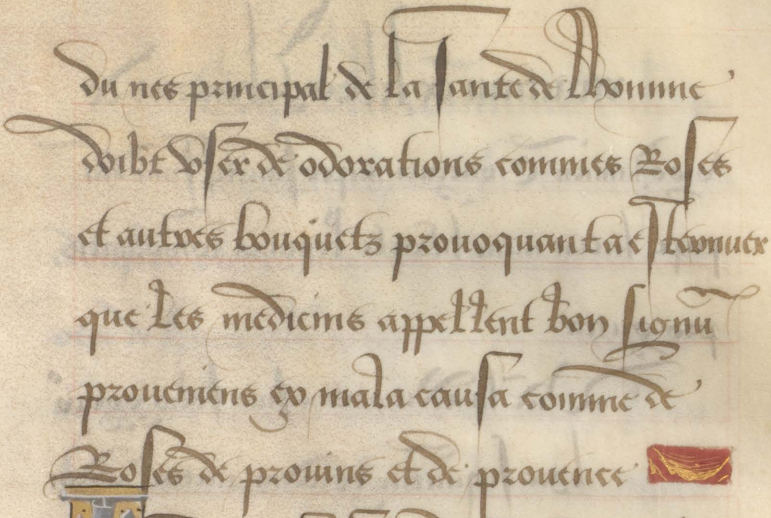 du nes principal de la sante de lhomme
doibt vser de odorations commes Roses
et autres bouquetz prouoquant a esternuer
que les medicins appellent bon signū
proueniens ex mala causa comme de
Roses de prouins et de prouence